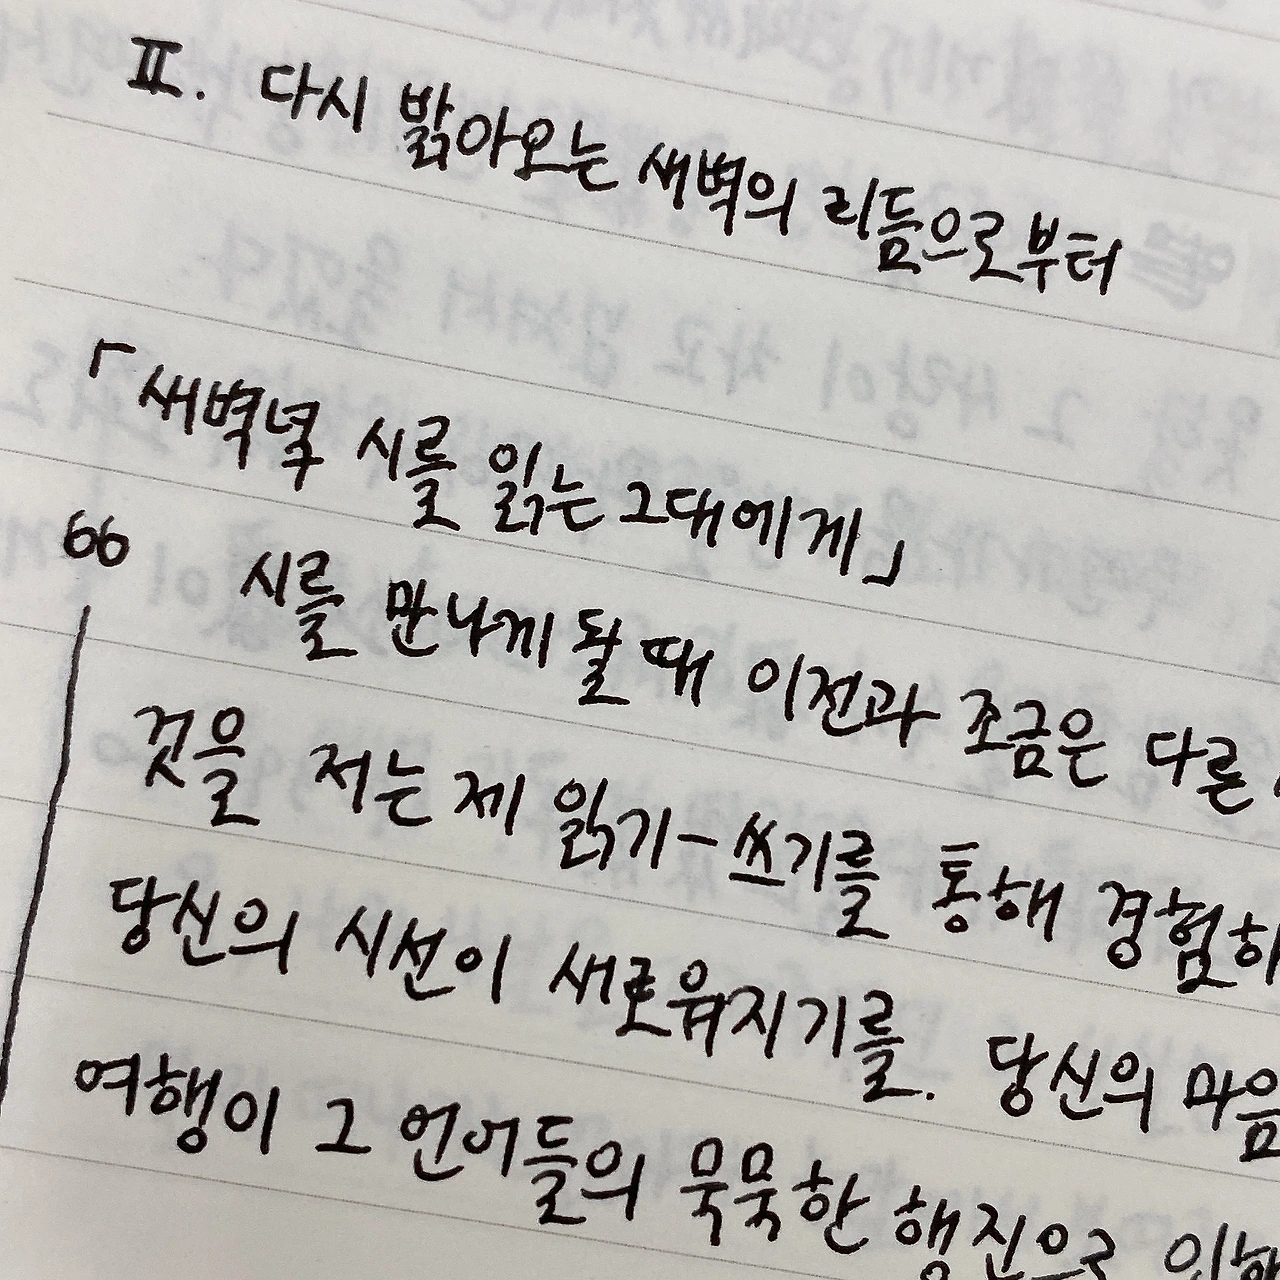 Ⅱ. 다시 밝아오는 새벽의 리듬으로부터
「새벽녘 시를 읽는 그대에게」
66 시를 만나게 될 때 이전과 조금은 다른
것을 저는 제 읽기-쓰기를 통해 경험하
당신의 시선이 새로워지기를. 당신의 마음
여행이 그 언어들의 묵묵한 행진으로 인해